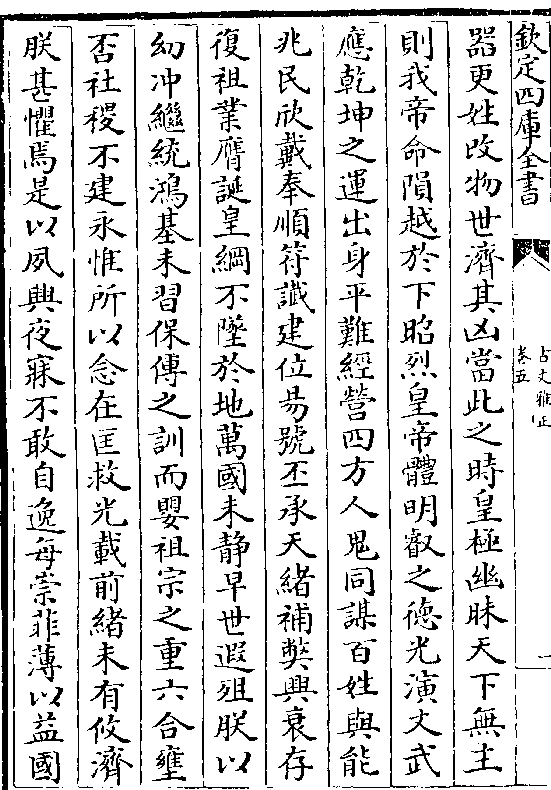 欽定四庫全書
古文雅正
卷五
一
器更姓改物世濟其凶當此之時皇極幽昧天下無主
則我帝命隕越於下昭烈皇帝體明叡之德光演文武
應乾坤之運出身平難經營四方人鬼同謀百姓與能
兆民欣戴奉順符讖建位易號丕承天緒補獘興衰存
復祖業膺誕皇綱不墜於地萬國未静早世遐殂朕以
幼冲繼統鴻基未習保傅之訓而嬰祖宗之重六合壅
否社稷不建永惟所以念在匡救光載前緒未有攸濟
朕甚懼焉是以夙興夜寐不敢自逸每崇菲薄以益國